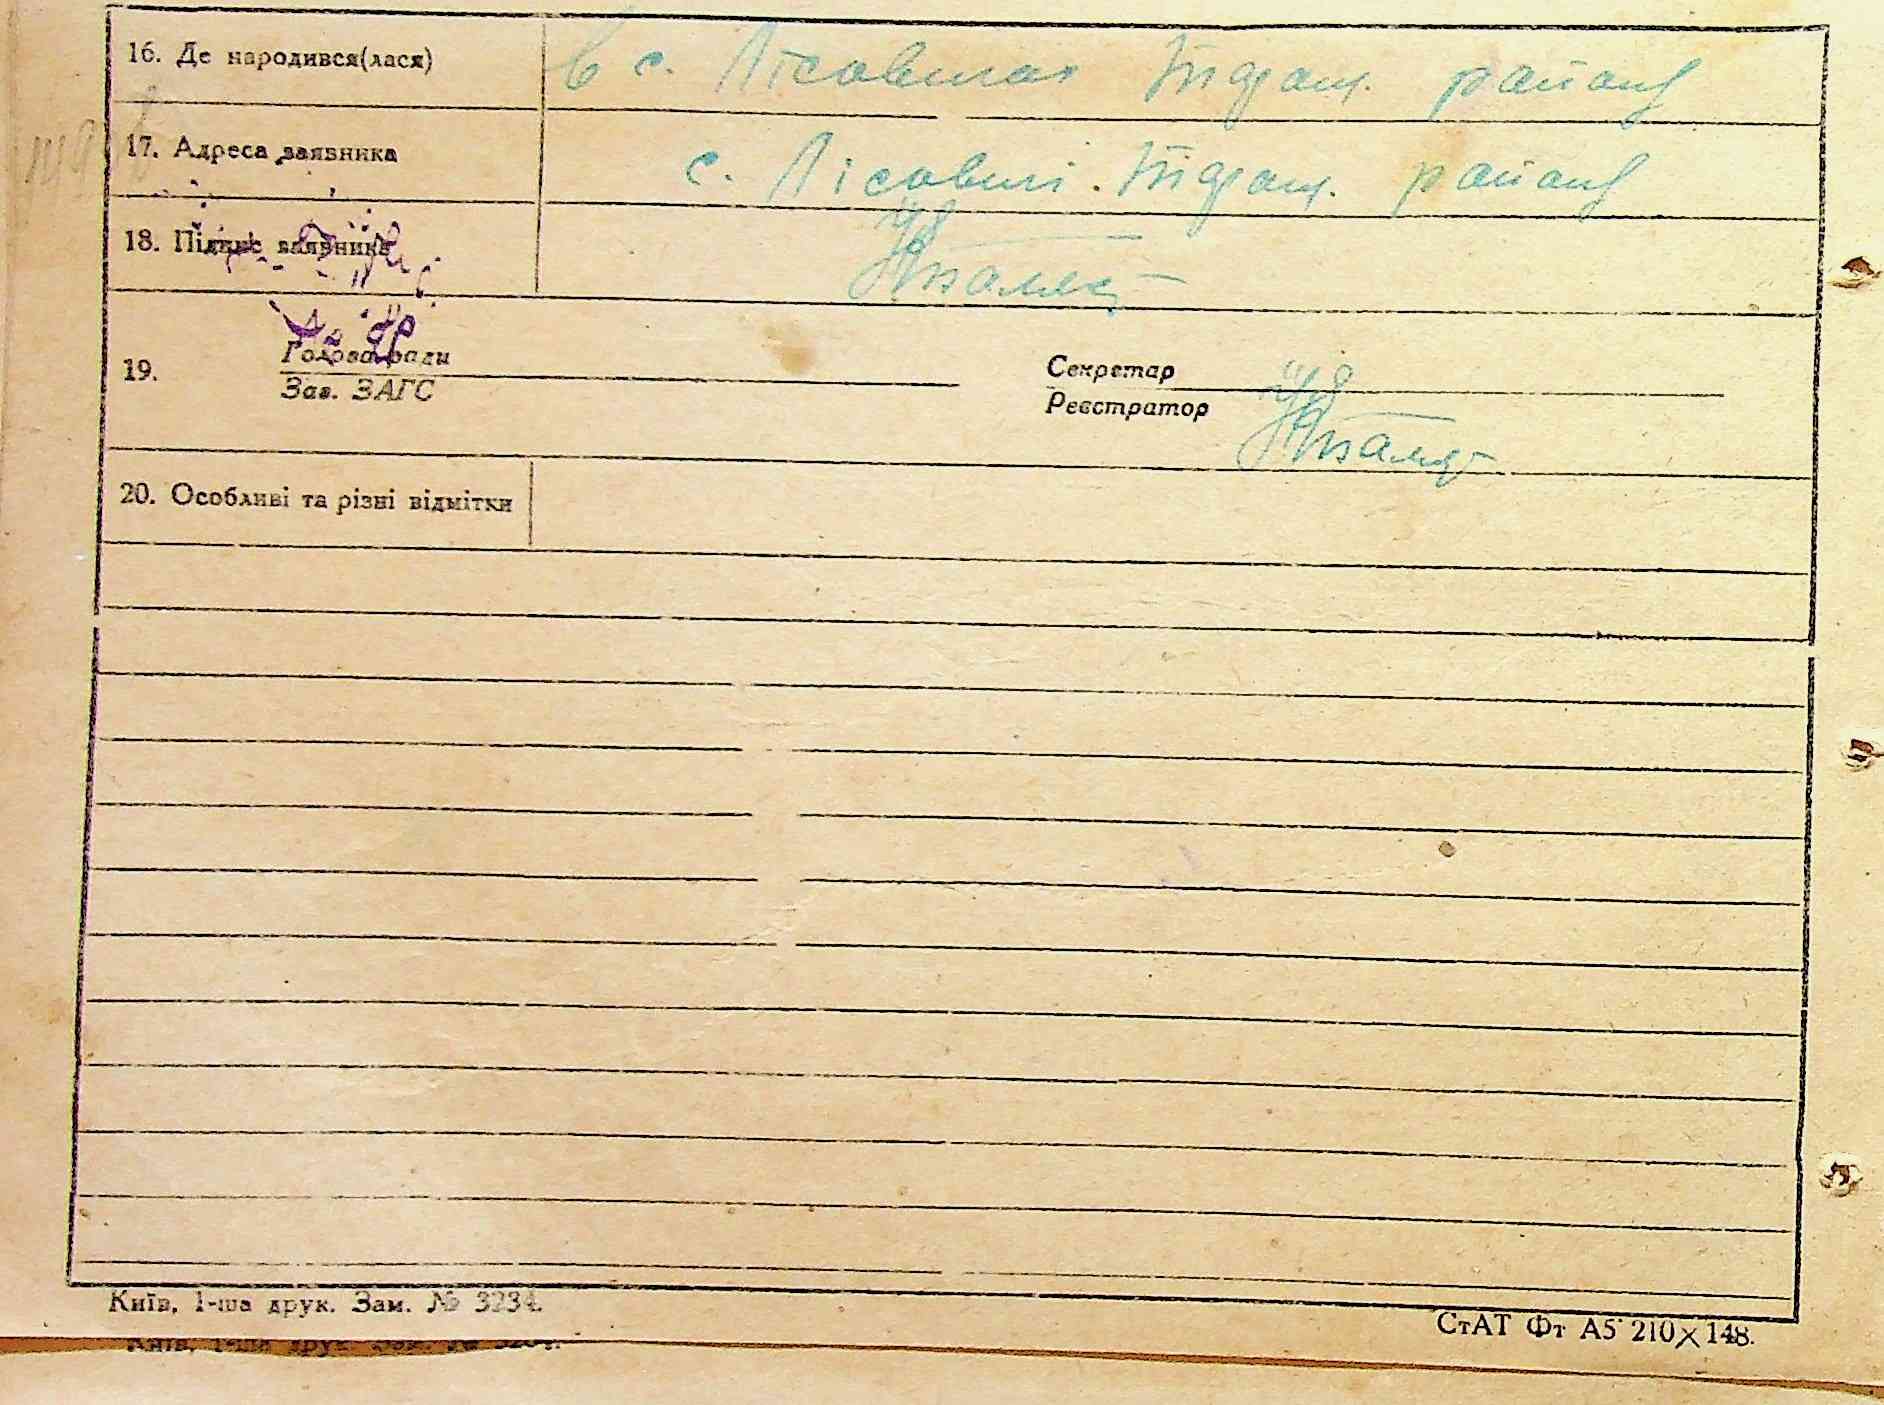 16. Де народився(лася) в с. Лісовичах Тидзащ. району
17. Адреса заявника с. Лісовичі. району
18. Підпис заявника
Голова ради Секретар
19.
Зав. ЗАГС Реєстратор
20. Особливі та різні відмітки
Київ, 1-ша друк. Зам. № 3234.
СтАТ Фт А5 210×148.
Київ, 1-ша друк. Зам. №